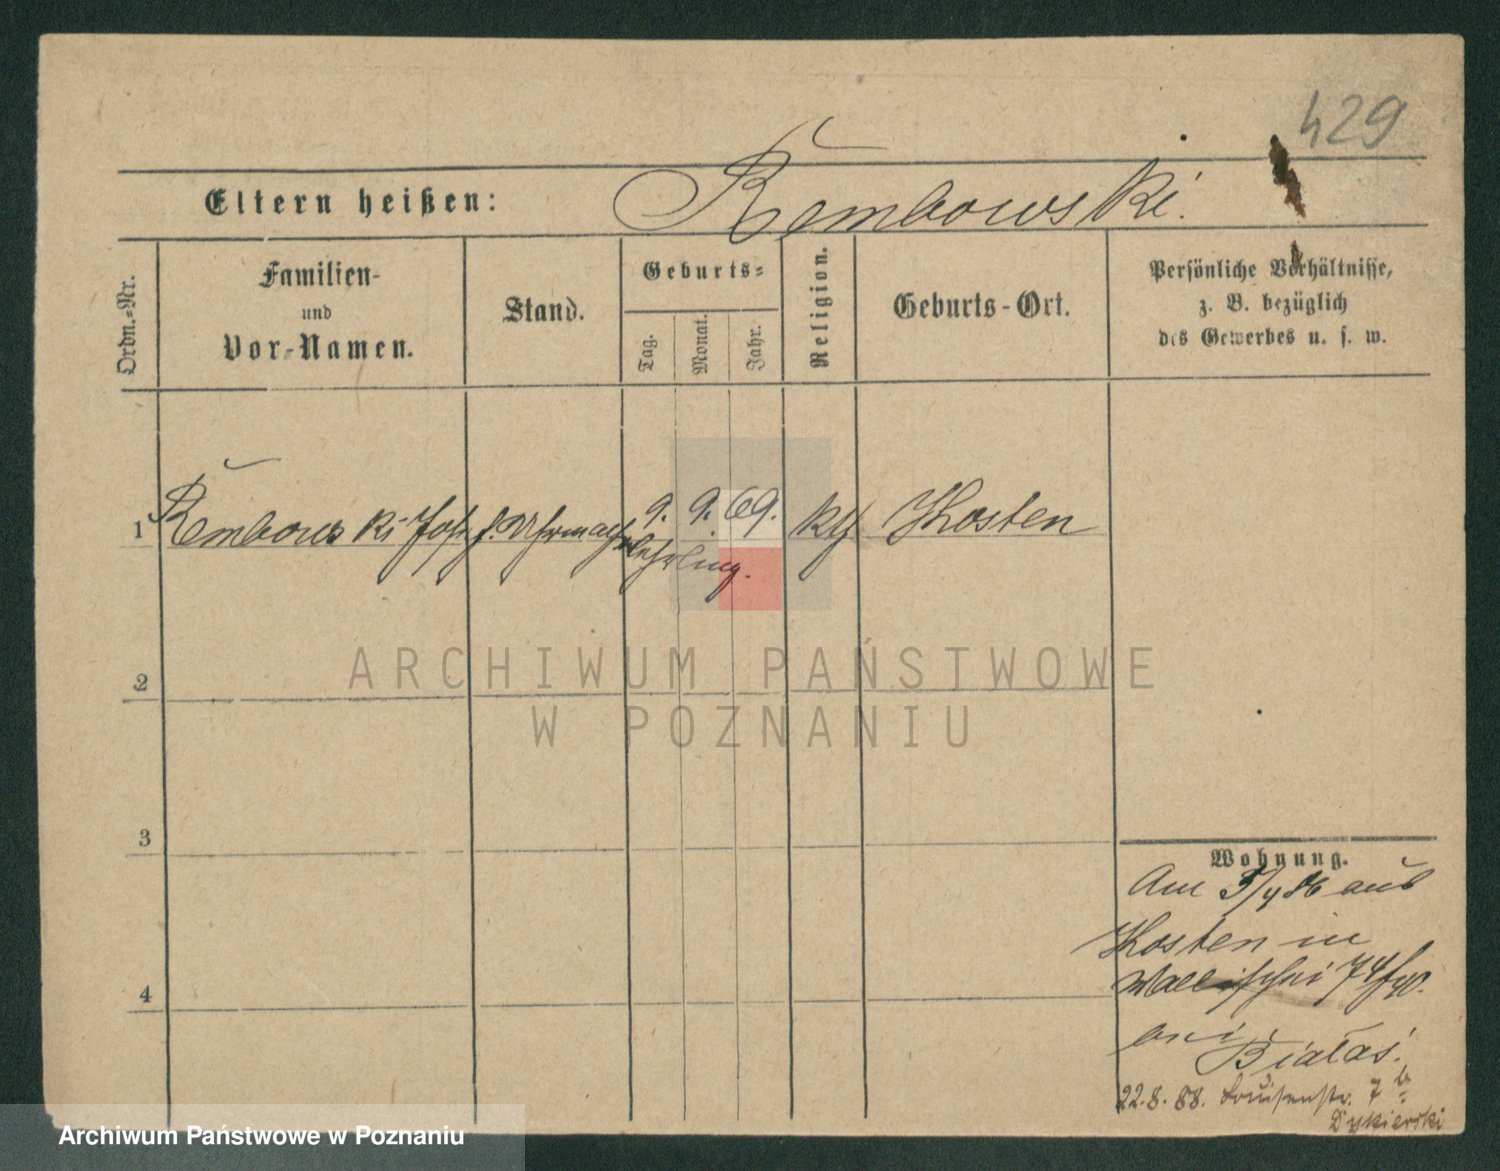 429
Eltern heißen: Rembowski.
Ordn.-Nr.
Familien-
und
Vor-Namen.
Stand.
Geburts-
Tag.
Monat.
Jahr.
Religion.
Geburts-Ort.
Persönliche Verhältnisse,
z. B. bezüglich
des Gewerbes u. s. w.
1 Rembowski Joh. Uhrmach 9. 9. 69. kth Kosten
lehrling.
ARCHIWUM PAŃSTWOWE
W POZNANIU
2
3
Wohnung.
Am 5/4 86 aus
Kosten in
Wallischei 74/
4
bei Białas.
22.8.88. Louisenstr. 7 b
Dykierski
Archiwum Państwowe w Poznaniu